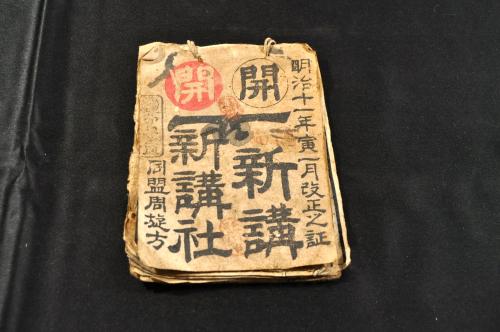 明治十一年寅一月改正之証
開
一新講
開
一新講社
同盟周旋方